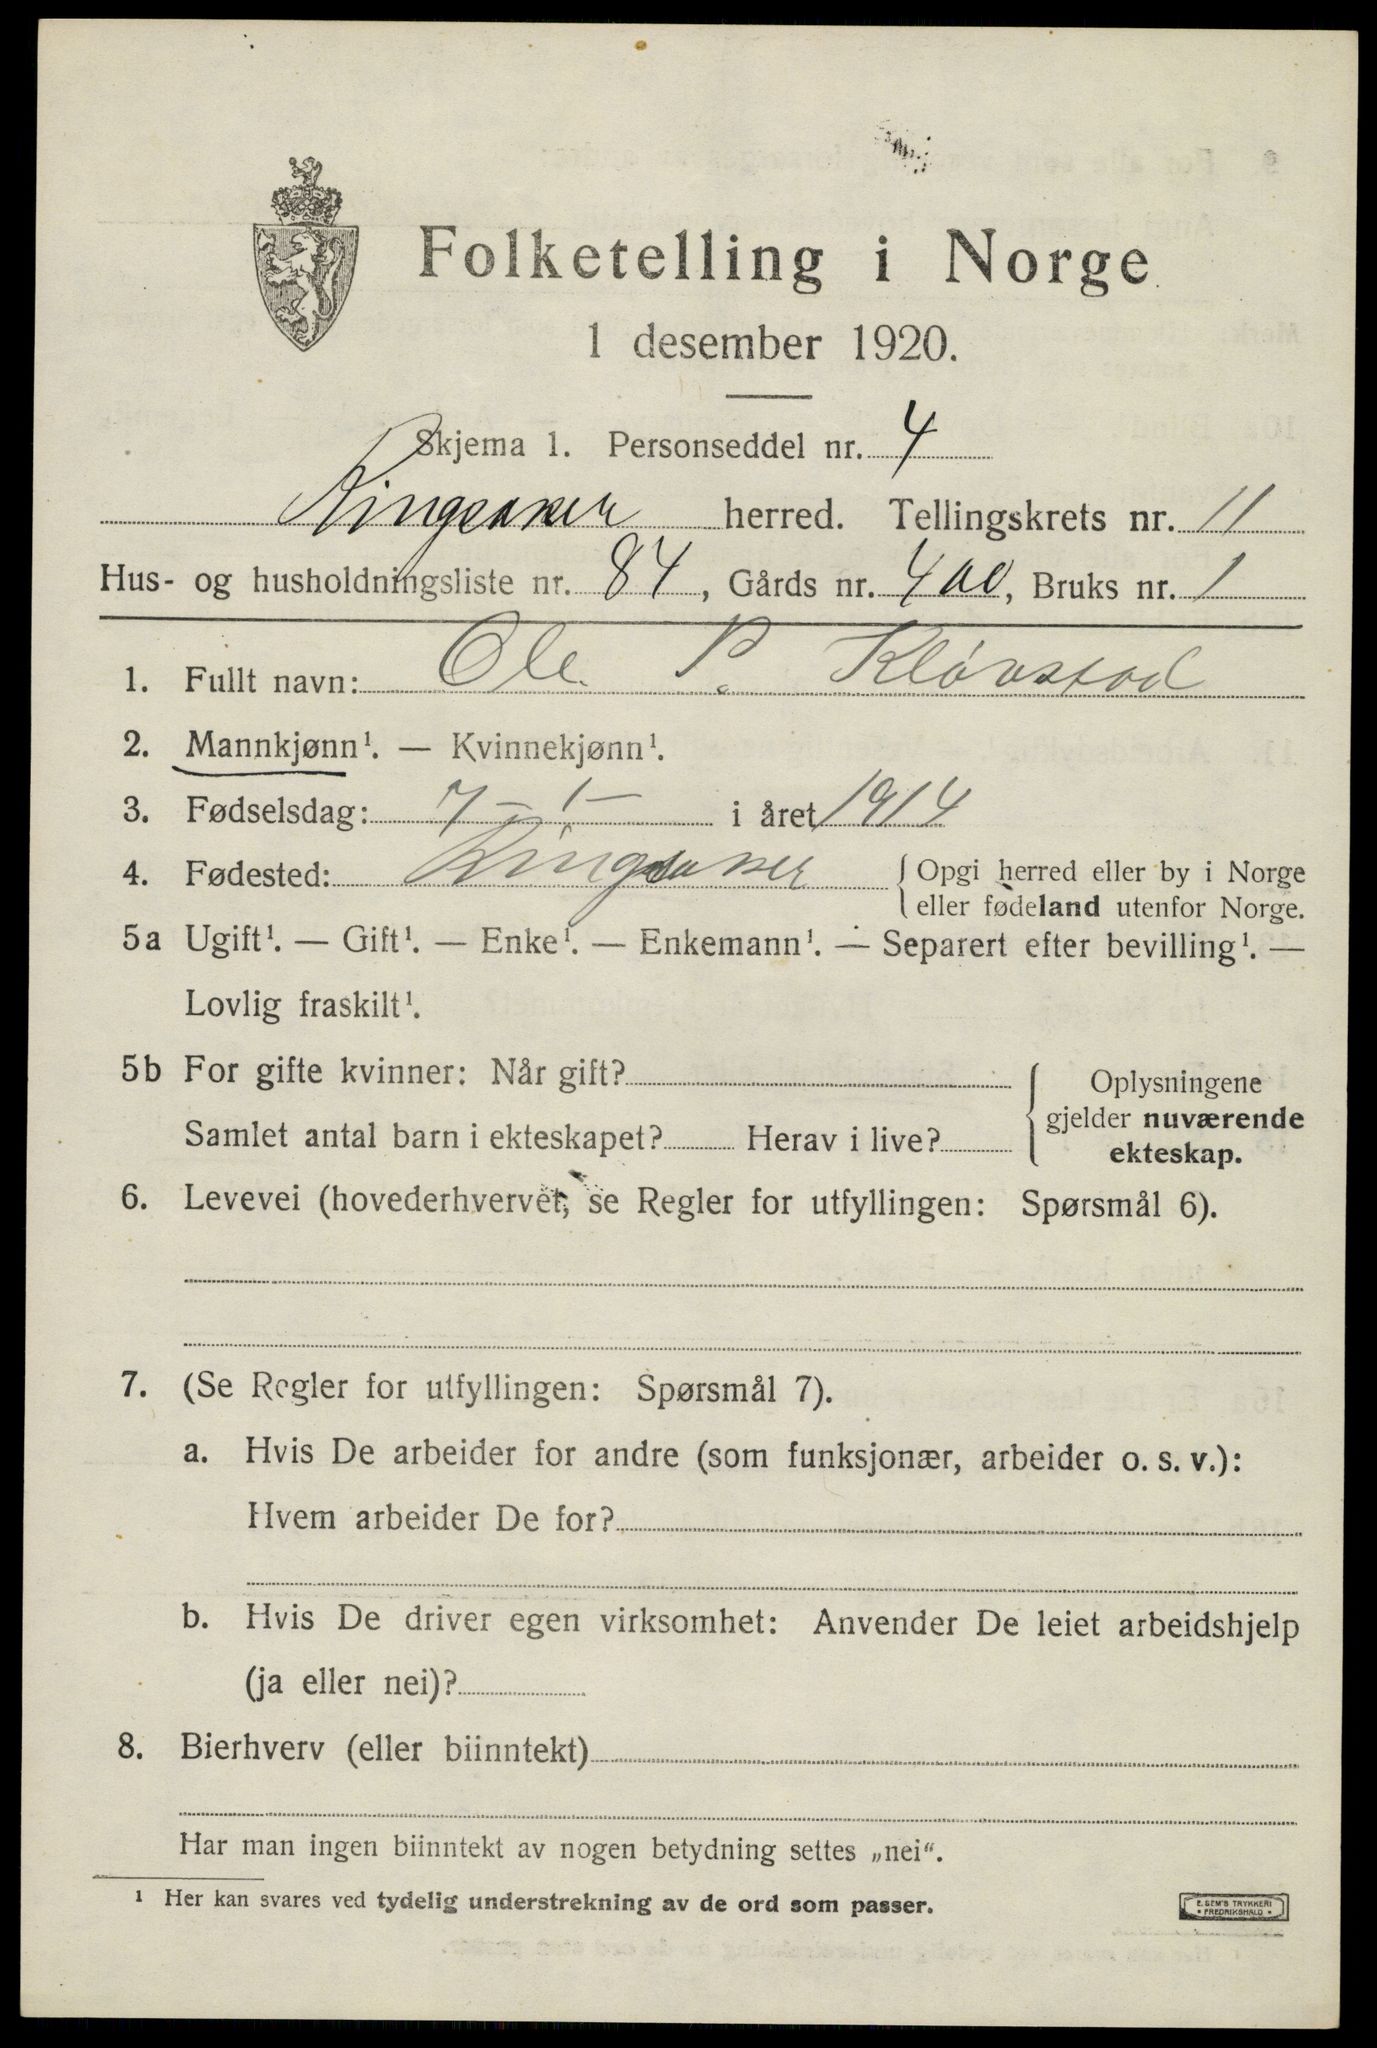 Folketelling i Norge
1 desember 1920.
Skjema 1. Personseddel nr. 4
Ringsaker herred. Tellingskrets nr. 11
Hus- og husholdningsliste nr. 84, Gårds nr. 400, Bruks nr. 1
1. Fullt navn: Ole P. Kløvstad
2. Mannkjønn¹. — Kvinnekjønn¹.
3. Fødselsdag: 7 – 1 – i året 1914
4. Fødested: Ringsaker { Opgi herred eller by i Norge
eller fødeland utenfor Norge.
5a Ugift¹. — Gift¹. — Enke¹. — Enkemann¹. — Separert efter bevilling¹. —
Lovlig fraskilt¹.
5b For gifte kvinner: Når gift?
Samlet antal barn i ekteskapet? Herav i live?
{ Oplysningene
gjelder nuværende
ekteskap.
6. Levevei (hovederhvervet, se Regler for utfyllingen: Spørsmål 6).
7. (Se Regler for utfyllingen: Spørsmål 7).
a. Hvis De arbeider for andre (som funksjonær, arbeider o. s. v.):
Hvem arbeider De for?
b. Hvis De driver egen virksomhet: Anvender De leiet arbeidshjelp
(ja eller nei)?
8. Bierhverv (eller biinntekt)
Har man ingen biinntekt av nogen betydning settes „nei“.
¹ Her kan svares ved tydelig understrekning av de ord som passer.
E. SEM'S TRYKKERI
• FREDRIKSHALD •